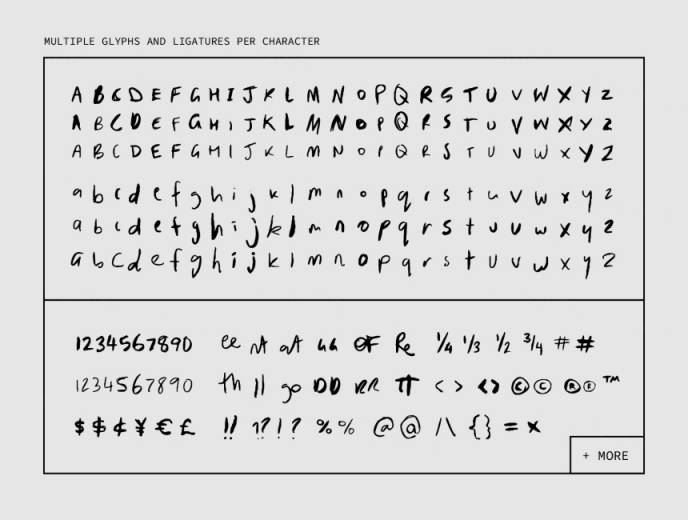 MULTIPLE GLYPHS AND LIGATURES PER CHARACTER
A B C D E F G H I J K L M N O P Q R S T U V W X Y Z
A B C D E F G H I J K L M N O P Q R S T U V W X Y Z
A B C D E F G H I J K L M N O P Q R S T U V W X Y Z
a b c d e f g h i j k l m n o p q r s t u v w x y z
a b c d e f g h i j k l m n o p q r s t u v w x y z
a b c d e f g h i j k l m n o p q r s t u v w x y z
1234567890 ee nt at OF Re ¼ ⅓ ½ ¾ # #
1234567890 th ll go DD RR TT < > < > © © ® ® ™
$ $ ¢ ¥ € £ !! !? ! ? % % @ @ / \ { } = ×
+ MORE